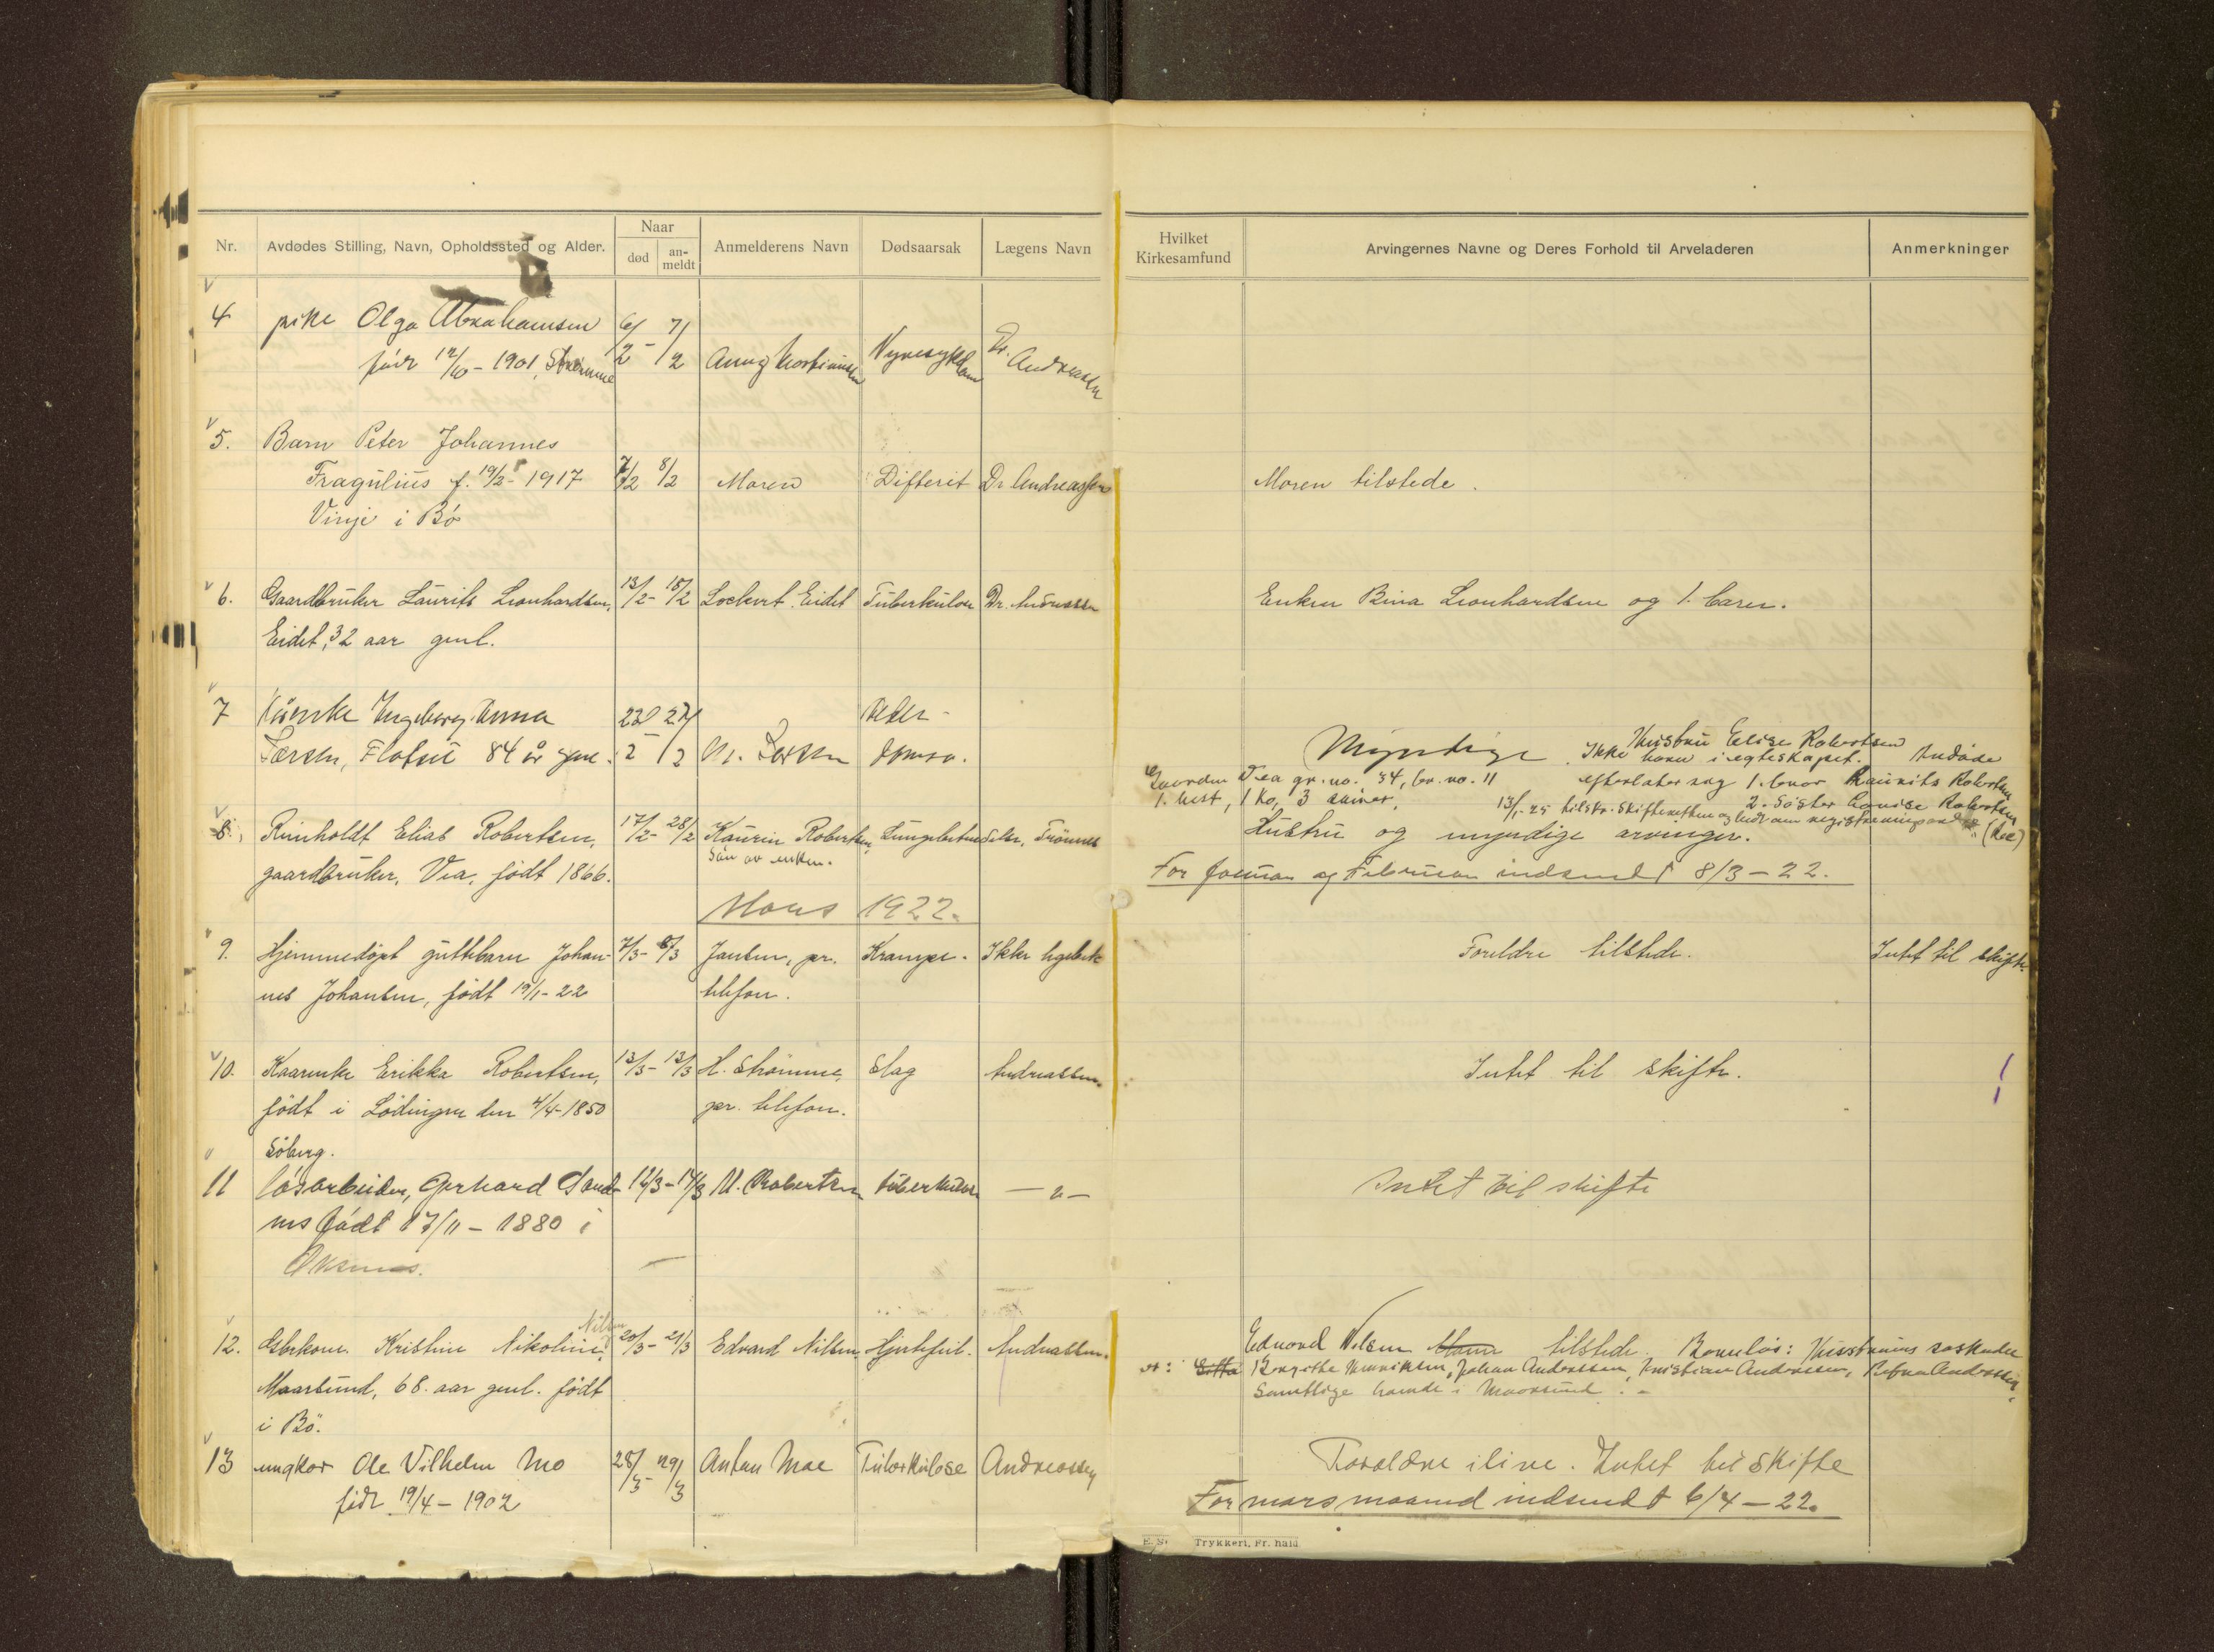 Nr. Avdødes Stilling, Navn, Opholdssted og Alder. Naar død an-meldt Anmelderens Navn Dødsaarsak Lægens Navn Hvilket Kirkesamfund Arvingernes Navne og Deres Forhold til Arveladeren Anmerkninger
4 pike Olga Abrahamsen 6/2 - 7/2 Nyresykdom Dr. Andreassen
født 12/10 - 1901, Strømme
5. Barn Peter Johannes
Fragulius f. 19/2 - 1917 7/2 8/2 Moren Difterit Dr Andreassen Moren tilstede.
Vinje i Bø
6. Gaardbruker Laurits Leonhardsen, 13/2 - 15/2 Lockert Eidet Tuberkulose Dr. Andreassen Enken Bina Leonhardsen og 1 barn.
Eidet, 32 aar gml.
7 Ingeborg Anna 22/2 - 27/2 Alder-
84 år gml. domso. Myndige
Hustru Elise Robertsen
Ikke barn i egteskapet. Avdøde
Gaarden Vea gr. no. 34, br. no. 11 efterlater sig 1. bror Laurits Robertsen
1 hest, 1 ko, 3 sauer. 2. Søster Lovise Robertsen
13/1-25 tilskr. skifteretten og bedt om registrering
8. Reinholdt Elias Robertsen, 17/2 - 28/2 Kaurin Robertsen, Lungebetændelse, Trønnes Hustru og myndige arvinger.
søn av enken.
gaardbruker, Vea, født 1866.
For januar og Februar indsendt 8/3 - 22.
Mars 1922.
9. Hjemmedøpt guttebarn Johan- 7/3 - 8/3 Jansen, pr. Krampe. Ikke Foreldre tilstede. Intet til skifte.
nes Johansen, født 19/1 - 22 telefon.
10. Kaarenke Erikka Robertsen, 13/3 - 13/3 H. Strømme, Slag Andreassen. Intet til skifte.
født i Lødingen den 4/4 - 1850 pr. telefon.
Søberg.
11 løsarbeider, Gerhard Sand- 12/3 - 14/3 M. Robertsen tuberkulose — " — Intet til skifte
nes født 17/11 - 1880 i
Øksnes.
12. Kristine Nikoline Nilsen 20/3 - 21/3 Edvard Nilsen. Hjertefeil. Andreassen. Edvard Nilsen Mann tilstede. Barnløs: Hustruens søskende
er: Bergithe Henriksen, Johan Andreassen, Kristian Andreassen,
Maarsund, 68 aar gml. født Samtlige boende i Maarsund. -
i Bø.
13 ungkar Ole Vilhelm Mo 28/3 - 29/3 Anton Moe Tuberkulose Andreassen Foreldre i live. Intet til skifte
født 19/4 - 1902
For mars maaned indsendt 6/4 - 22.
E. S. Trykkeri, Fr.hald